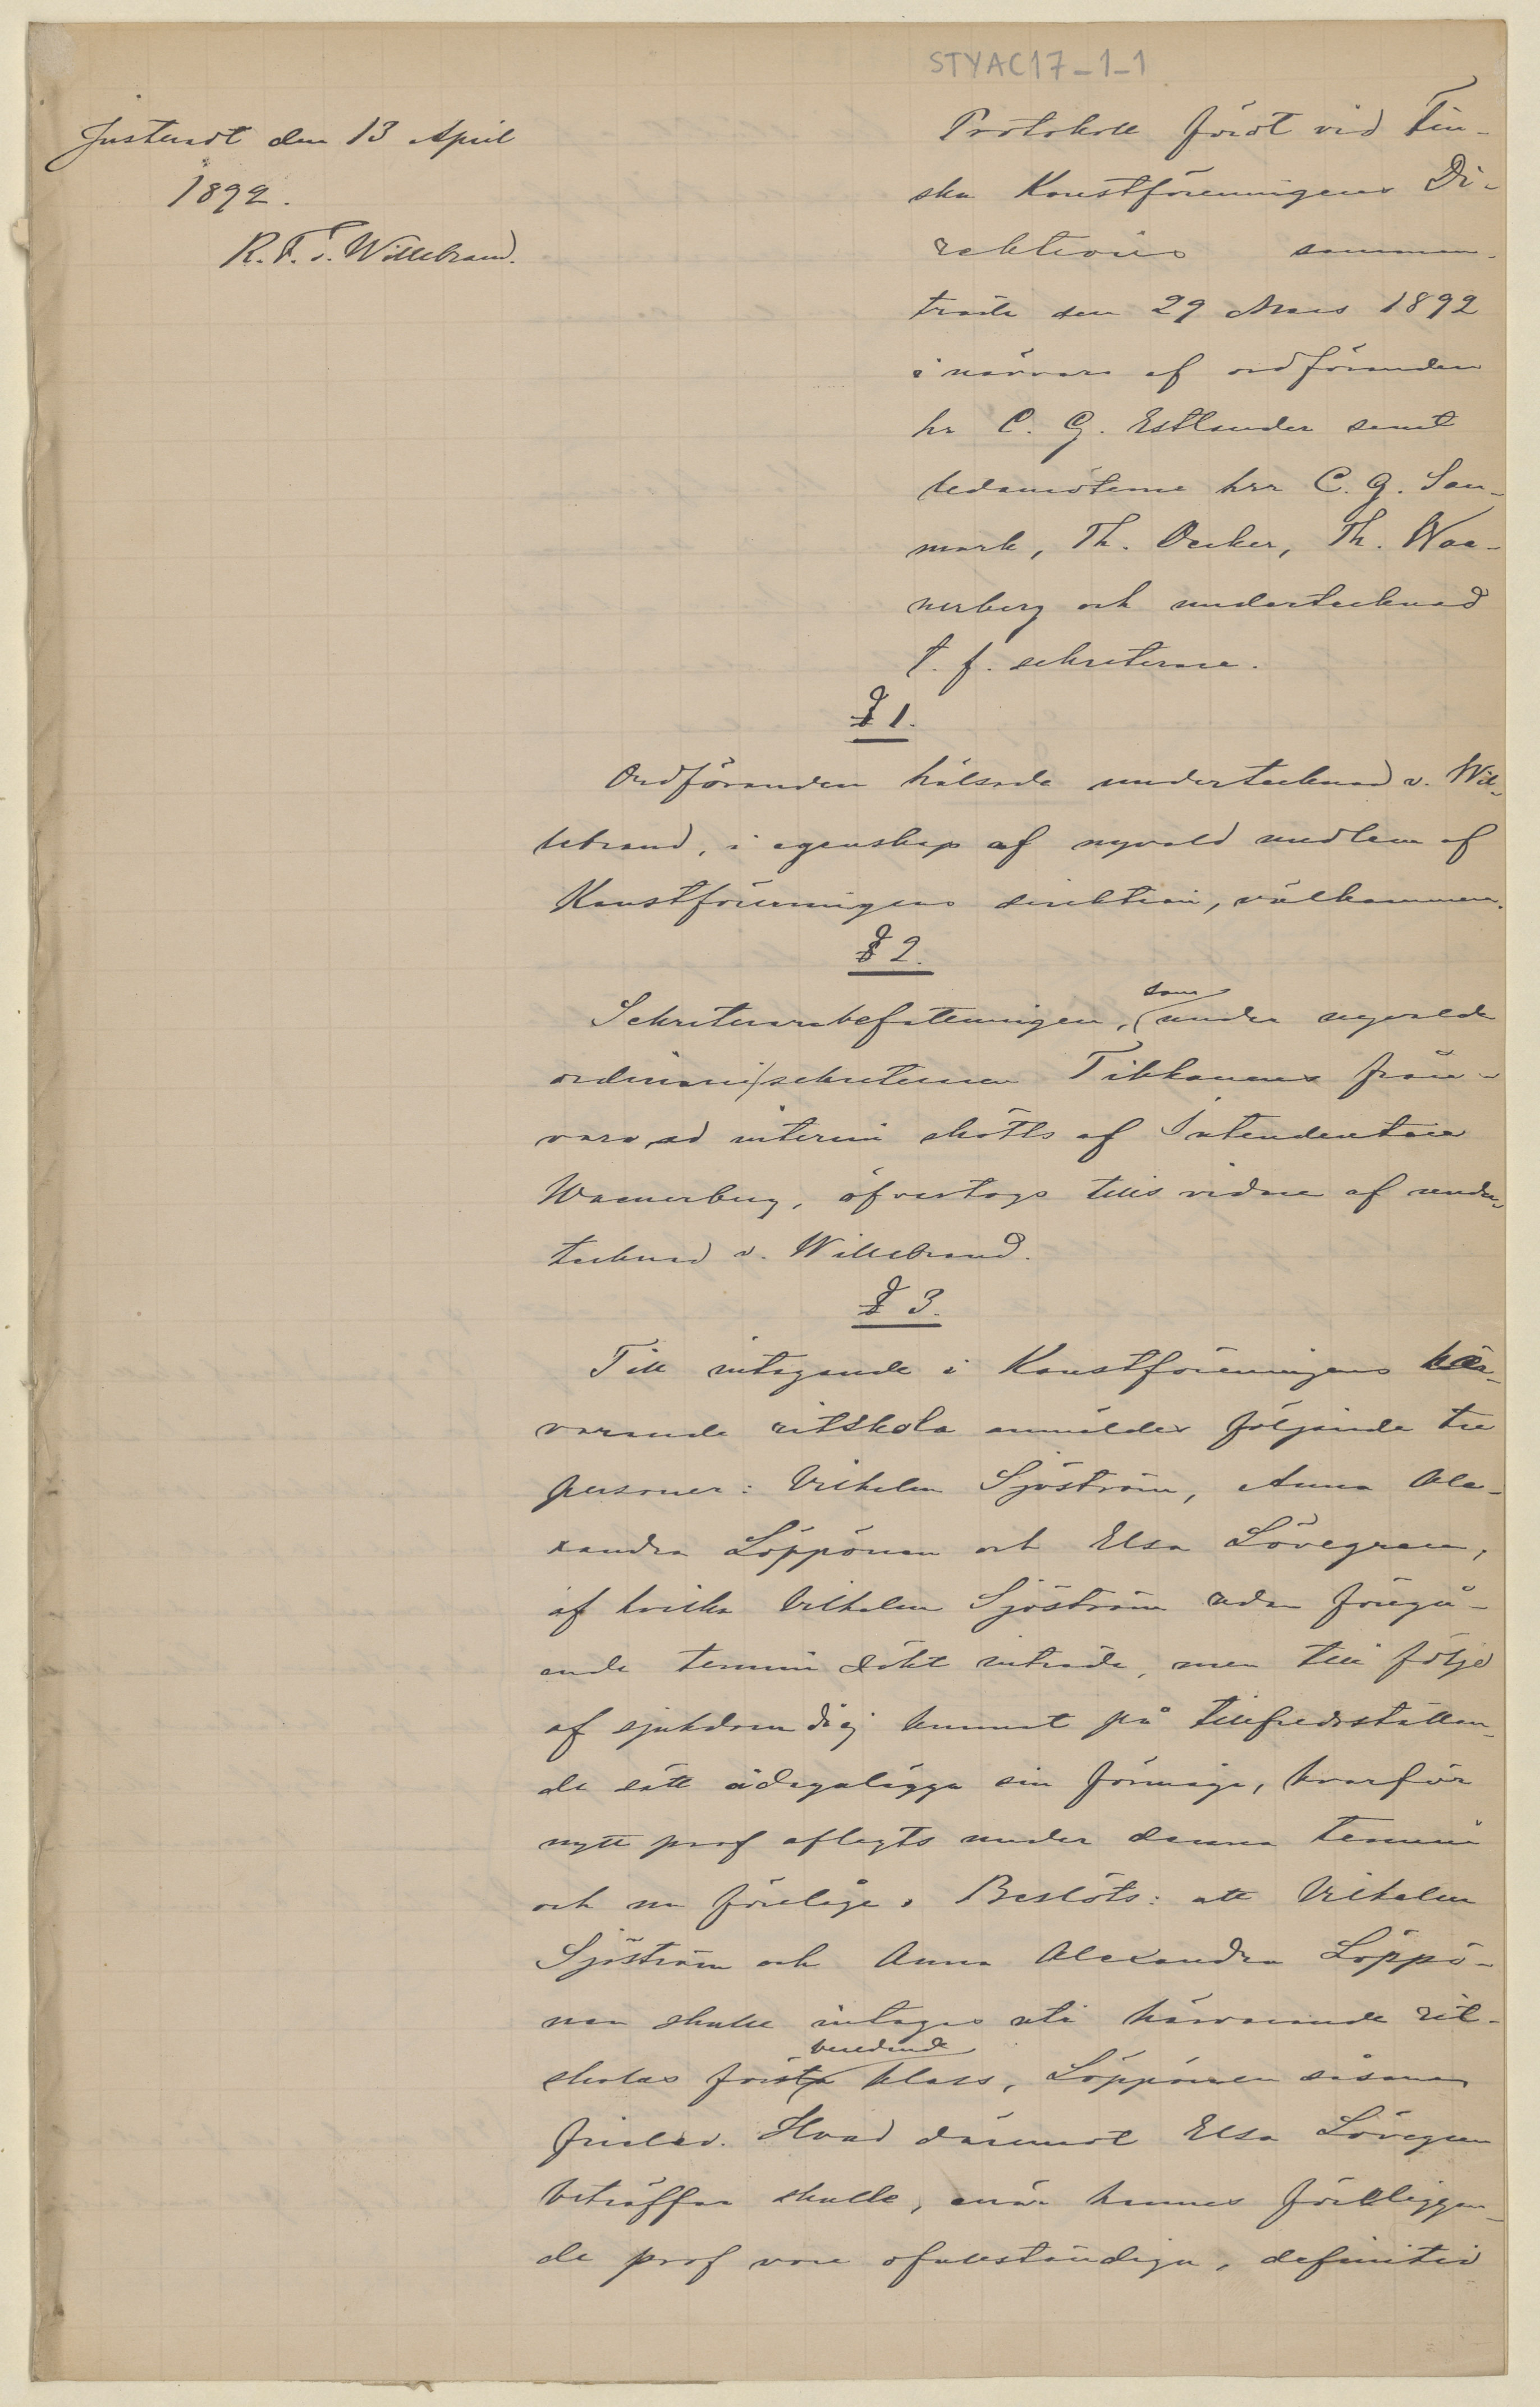 STYAC17-1-1
Justeradt den 13 April
1892.
R. F. v. Willebrand.
Protokoll fördt vid Fin-
ska Konstföreningens Di-
rektions samman-
träde den 29 Mars 1892
i närvaro af ordföranden
hr C. G. Estlander samt
ledamöterne hrr C. G. San-
mark, Th. Decker, Th. Wae-
nerberg och undertecknad
t. f. sekreterare.
§ 1.
Ordföranden hälsade undertecknad v. Wil-
lebrand, i egenskap af nyvald medlem af
Konstföreningens direktion, välkommen.
§ 2.
Sekreterarebefattningen, som under nyvalde
ordinarie sekreteraren Tikkanens från-
varo ad interim skötts af Intendenten
Waenerberg, öfvertogs tills vidare af under-
tecknad v. Willebrand.
§ 3.
Till intagande i Konstföreningens här-
varande ritskola anmäldes följande tre
personer: Vilhelm Sjöström, Anna Ale-
xandra Löppönen och Elsa Lövegren,
af hvilka Vilhelm Sjöström redan föregå-
ende termin sökt inträde, men till följd
af sjukdom då ej kunnat på tillfredsställan-
de sätt ådagalägga sin förmåga, hvarför
nytt prof aflagts under denna termin
och nu förelåge. Beslöts: att Vilhelm
Sjöström och Anna Alexandra Löppö-
nen skulle intagas uti härvarande rit-
skolas första beredande klass, Löppönen såsom
frielev. Hvad däremot Elsa Lövegren
beträffar skulle, enär hennes föreliggan-
de prof vore ofullständiga, definitiv